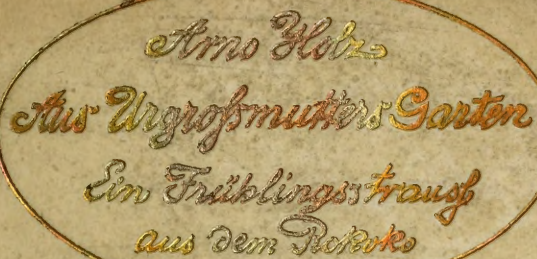 Arno Holz
Aus Urgroßmutters Garten
Ein Frühlingsstrauß
aus dem Rokoko